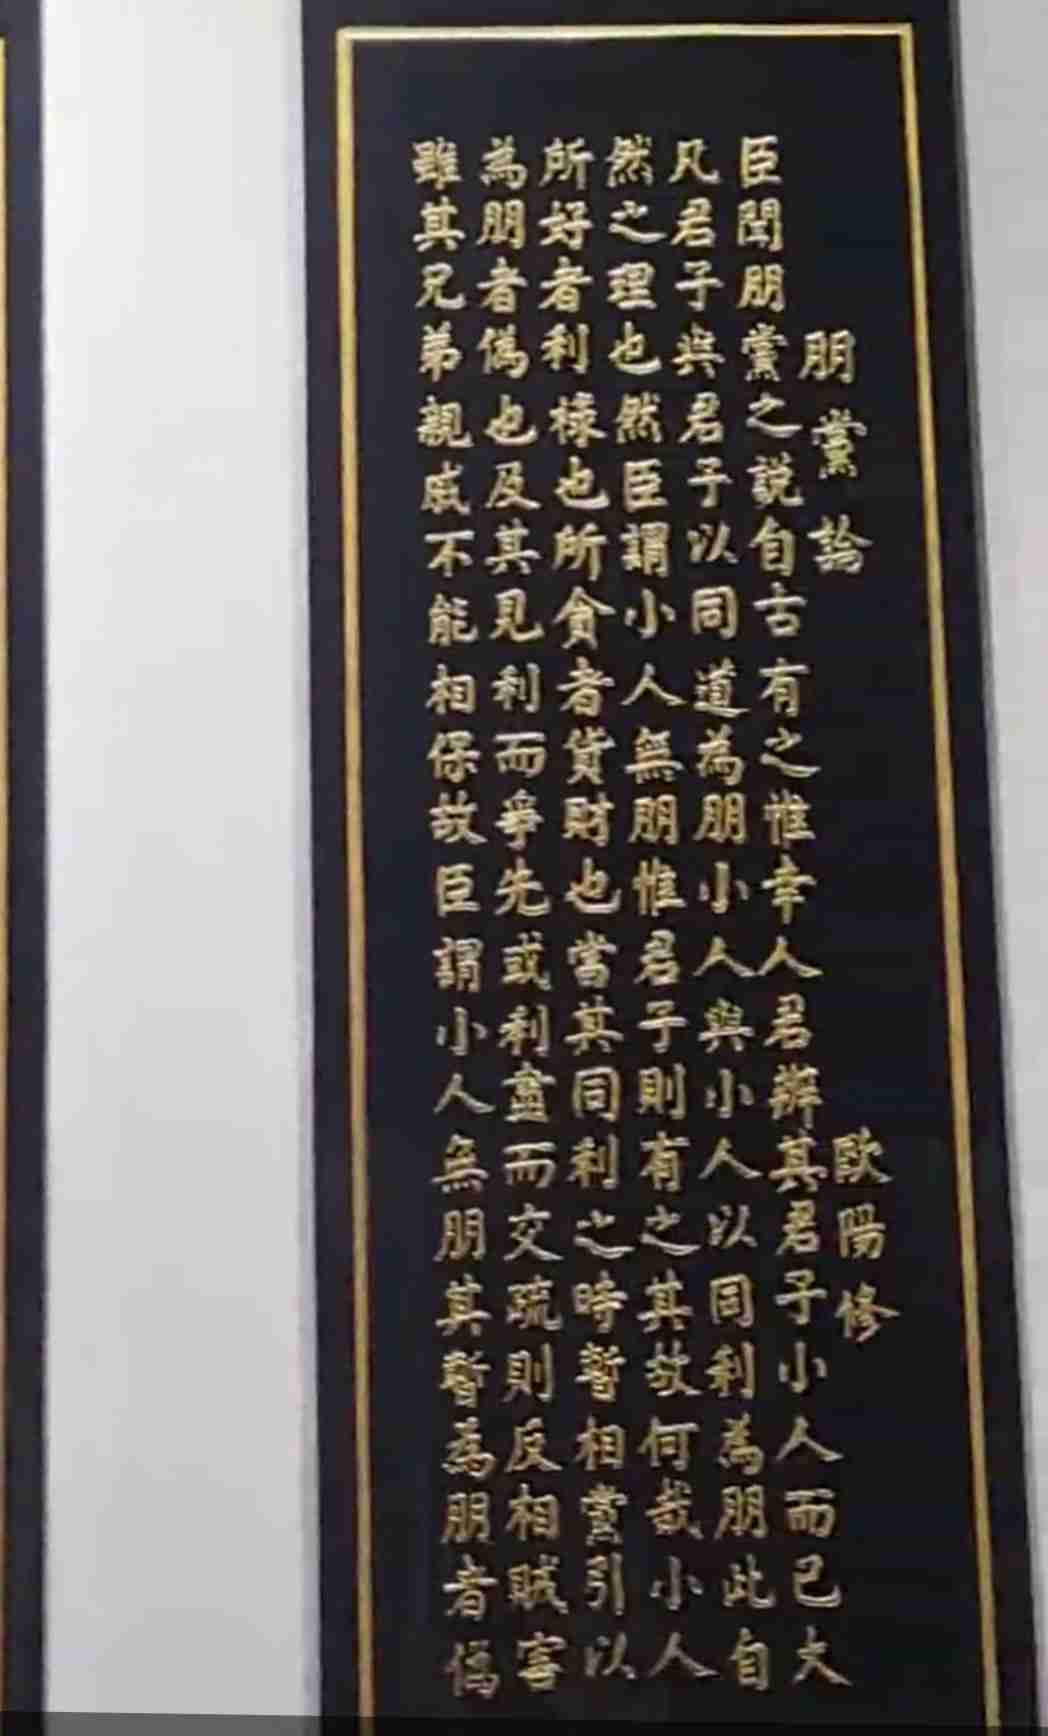 朋黨論 歐陽修
臣聞朋黨之説自古有之惟幸人君辨其君子小人而已大
凡君子與君子以同道為朋小人與小人以同利為朋此自
然之理也然臣謂小人無朋惟君子則有之其故何哉小人
所好者利祿也所貪者貨財也當其同利之時暫相黨引以
為朋者偽也及其見利而爭先或利盡而交疏則反相賊害
雖其兄弟親戚不能相保故臣謂小人無朋其暫為朋者偽